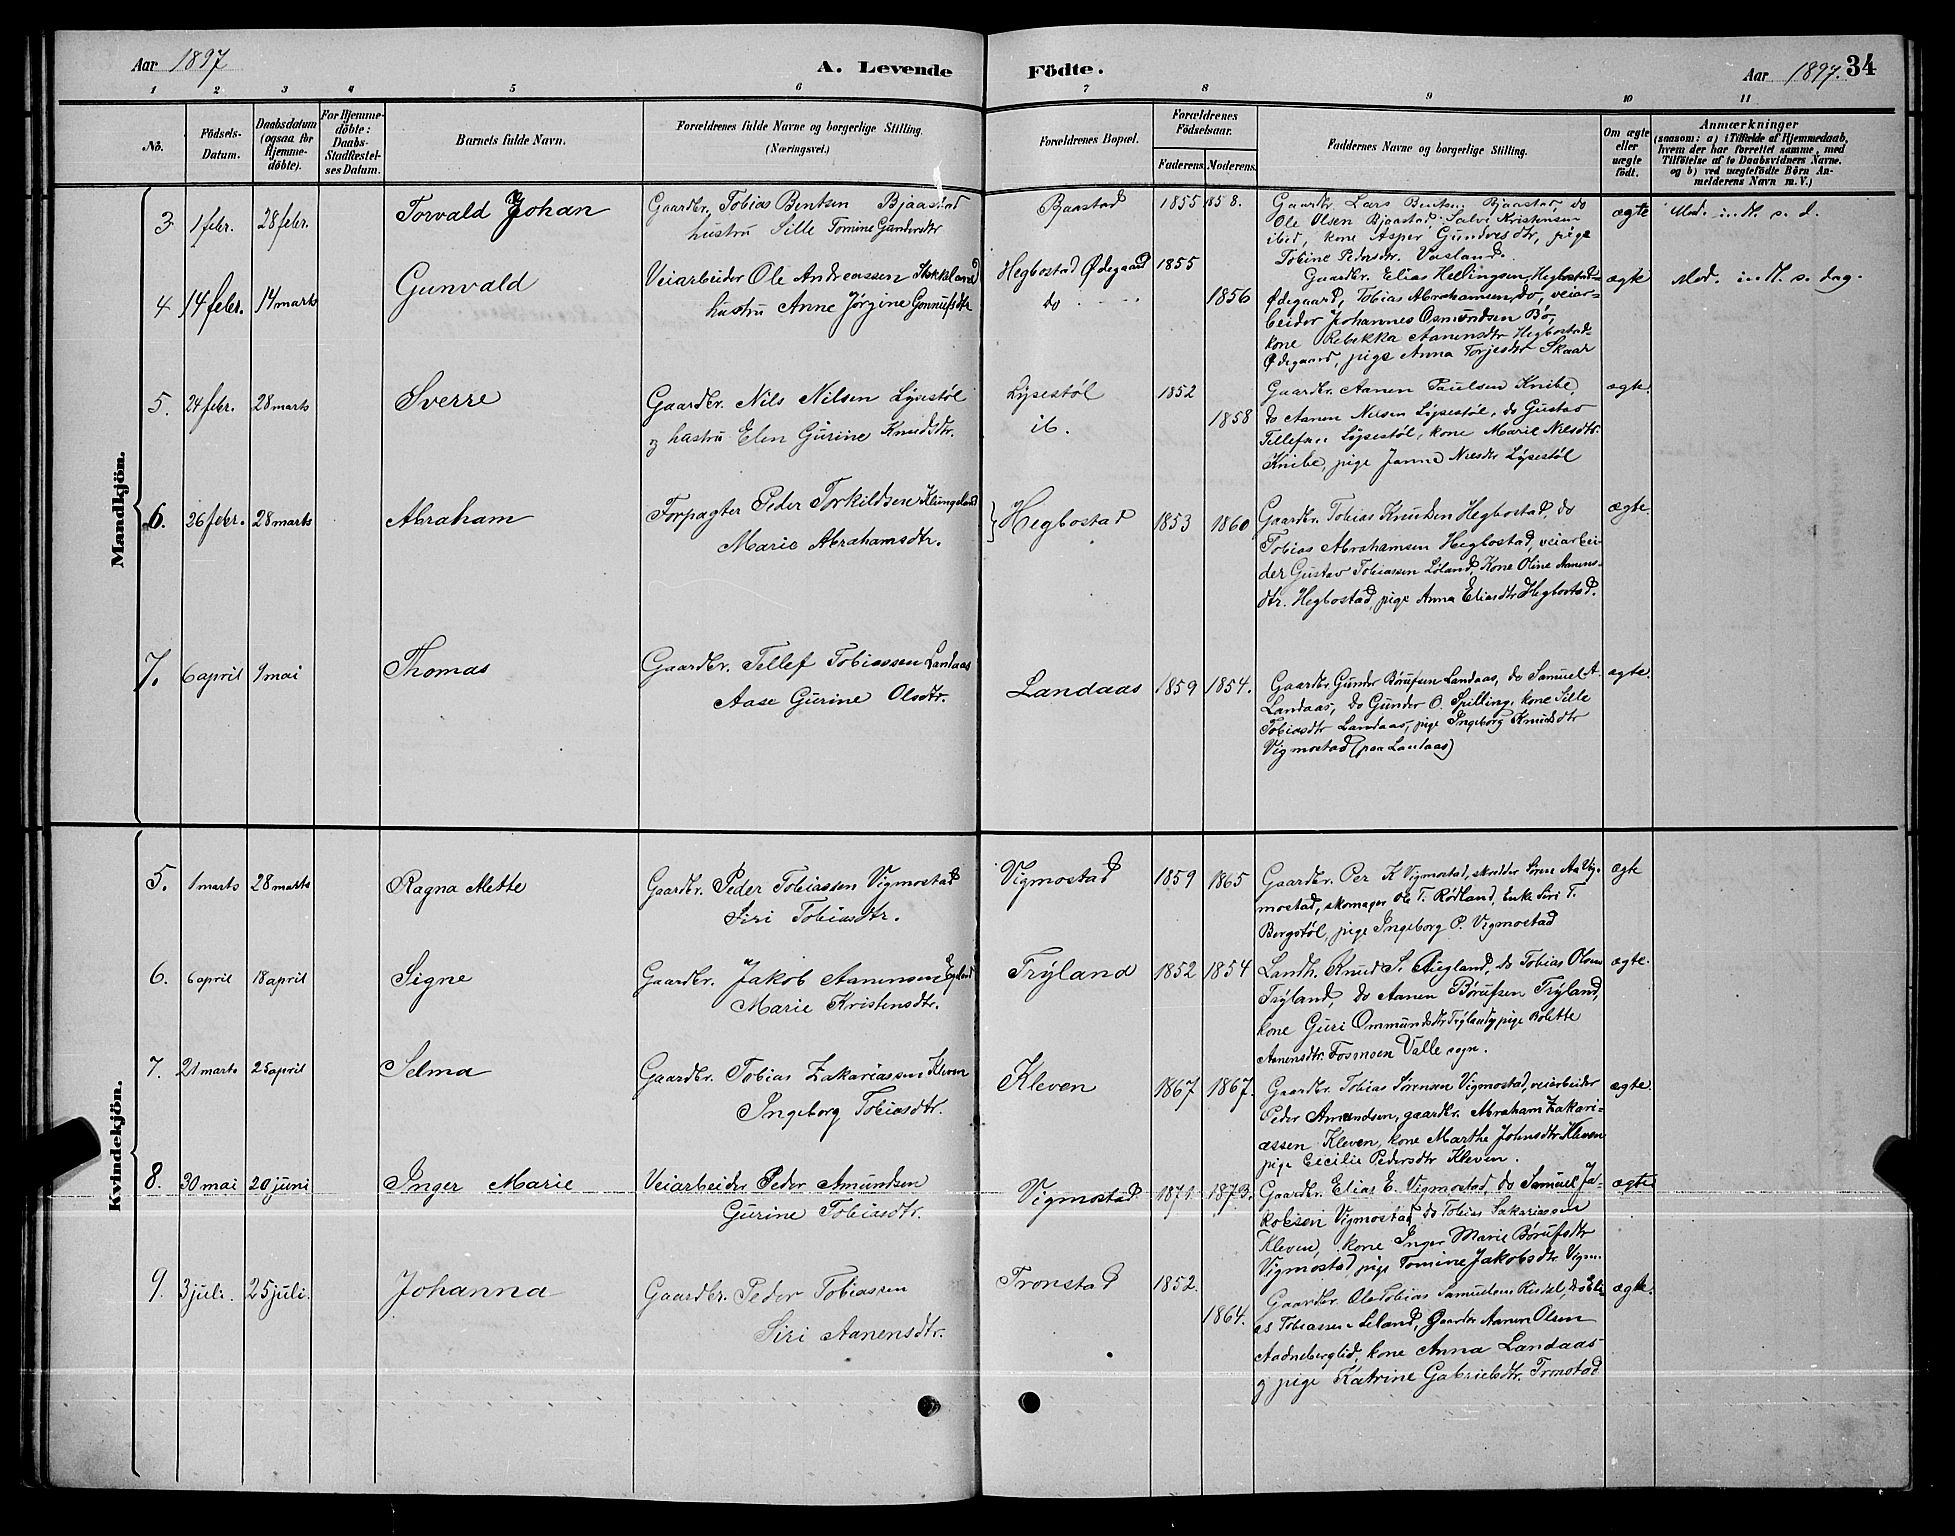 Aar 1897
A. Levende
Födte.
Aar 1897.
34
1 2 3 4 5 6 7 8 9 10 11
No.
Födsels-Datum.
Daabsdatum (ogsaa for Hjemmedöbte).
For Hjemmedöbte: Daabs-Stadfæstelses Datum.
Barnets fulde Navn.
Forældrenes fulde Navne og borgerlige Stilling. (Næringsvei.)
Forældrenes Bopæl.
Forældrenes Födselsaar.
Faderens. Moderens.
Faddernes Navne og borgerlige Stilling.
Om ægte eller uægte födt.
Anmærkninger
(saasom: a) i Tilfælde af Hjemmedaab,
hvem der har forrettet samme, med
Tilföielse af to Daabsvidners Navne.
og b) ved uægtefödte Börn An-
melderens Navn m. V.)
Mandkjön.
3 1 febr. 28 febr. Torvald Johan
Gaardbr. Tobias Bentsen Bjaastad
hustru Sille Tomine Gundersdtr
Bjaastad 1855 1858.
Gaardbr. Lars Bentsen Bjaastad do
Ole Olsen Bjaastad Salve Kristensen
ibid, kone Asper Gundersdtr, pige
Tobine Pedersdtr. Vasland.
ægte Mod. indt. s. d.
4 14 febr. 14 marts Gunvald
Veiarbeider Ole Andreassen Stokkeland
hustru Anne Jørgine Gunnufsdtr
Hegbostad Ødegaard do 1855 1856
Gaardbr. Elias Hellingsen Hegbostad-
Ødegaard, Tobias Abrahamsen, do, veiar-
beider Johannes Osmundsen Bø,
kone Rebekka Aanensdtr Hegbostad-
Ødegaard, pige Anna Torjesdtr Skaar
ægte Mod. indt. s. dag.
5. 24 febr. 28 marts Sverre
Gaardbr. Nils Nilsen Lysestøl
og hustru Elen Gurine Knudsdtr.
Lysestøl ib. 1852 1858
Gaardbr. Aanen Paulsen Knibe,
do Aanen Nilsen Lysestøl, do Gustav
Tellefsen Lysestøl, kone Marie Nilsdtr.
Knibe, pige Janna Nilsdtr Lysestøl
ægte.
6. 26 febr. 28 marts Abraham
Forpagter Peder Torkildsen Klungeland
Marie Abrahamsdtr.
Hegbostad 1853 1860
Gaardbr. Tobias Knudsen Hegbostad, do
Tobias Abrahamsen Hegbostad, veiarbei-
der Gustav Tobiassen Løland, Kone Oline Aanens-
dtr. Hegbostad, pige Anna Eliasdtr Hegbostad.
ægte.
7. 6 april 9 mai Thomas
Gaardbr. Tellef Tobiassen Landaas
Aase Gurine Olsdtr.
Landaas 1859 1854.
Gaardbr. Gunder Børufsen Landaas, do Samuel A.
Landaas, do Gunder O. Spilling, kone Sille
Tobiasdtr Landaas, pige Ingeborg Knudsdtr
Vigmostad (paa Landaas)
ægte.
Kvindekjön.
5. 1 marts 28 marts Ragna Mette
Gaardbr. Peder Tobiassen Vigmostad
Siri Tobiasdtr.
Vigmostad 1859 1865
Gaardbr. Per K Vigmostad, skredder Sören Aa Vig-
mostad, skomager Ole T. Rødland, Enke Siri T.
Bergstøl, pige Ingeborg P. Vigmostad
ægte
6. 6 april 18 april Signe
Gaardbr. Jakob Aanensen
Marie Kristensdtr.
Tryland 1852 1854
Landh. Knud S. Augland, do Tobias Olsen
Tryland, do Aanen Børufsen Tryland,
kone Guri Ommundsdtr Tryland, pige Bolette
Aanensdtr. Fosmoen Valle sogn.
ægte.
7. 21 marts 25 april Selma
Gaardbr. Tobias Zakariassen Kleven
Ingeborg Tobiasdtr.
Kleven 1867 1867.
Gaardbr. Tobias Sørensen Vigmostad, veiarbeider
Peder Amundsen, gaardbr. Abraham Zakari-
assen Kleven, kone Marthe Johnsdtr Kleven
pige Cicilie Pedersdtr Kleven.
ægte.
8. 30 mai 20 juni Inger Marie
Veiarbeider Peder Amundsen
Gurine Tobiasdtr.
Vigmostad 1871 1873.
Gaardbr. Elias E. Vigmostad, do Samuel Ja-
kobsen Vigmostad, do Tobias Sakariassen
Kleven, kone Inger Marie Børufsdtr
Vigmostad pige Tomine Jakobsdtr Vigm.
ægte
9. 3 juli. 25 juli. Johanna
Gaardbr. Peder Tobiassen
Siri Aanensdtr.
Tronstad 1852. 1864.
Gaardbr. Ole Tobias Samuelsen do Eli-
as Tobiassen Leland, Gaardbr Aanen Olsen
Aadneberglid, kone Anna Landaas
og pige Katrine Gabrielsdtr. Tronstad
ægte.